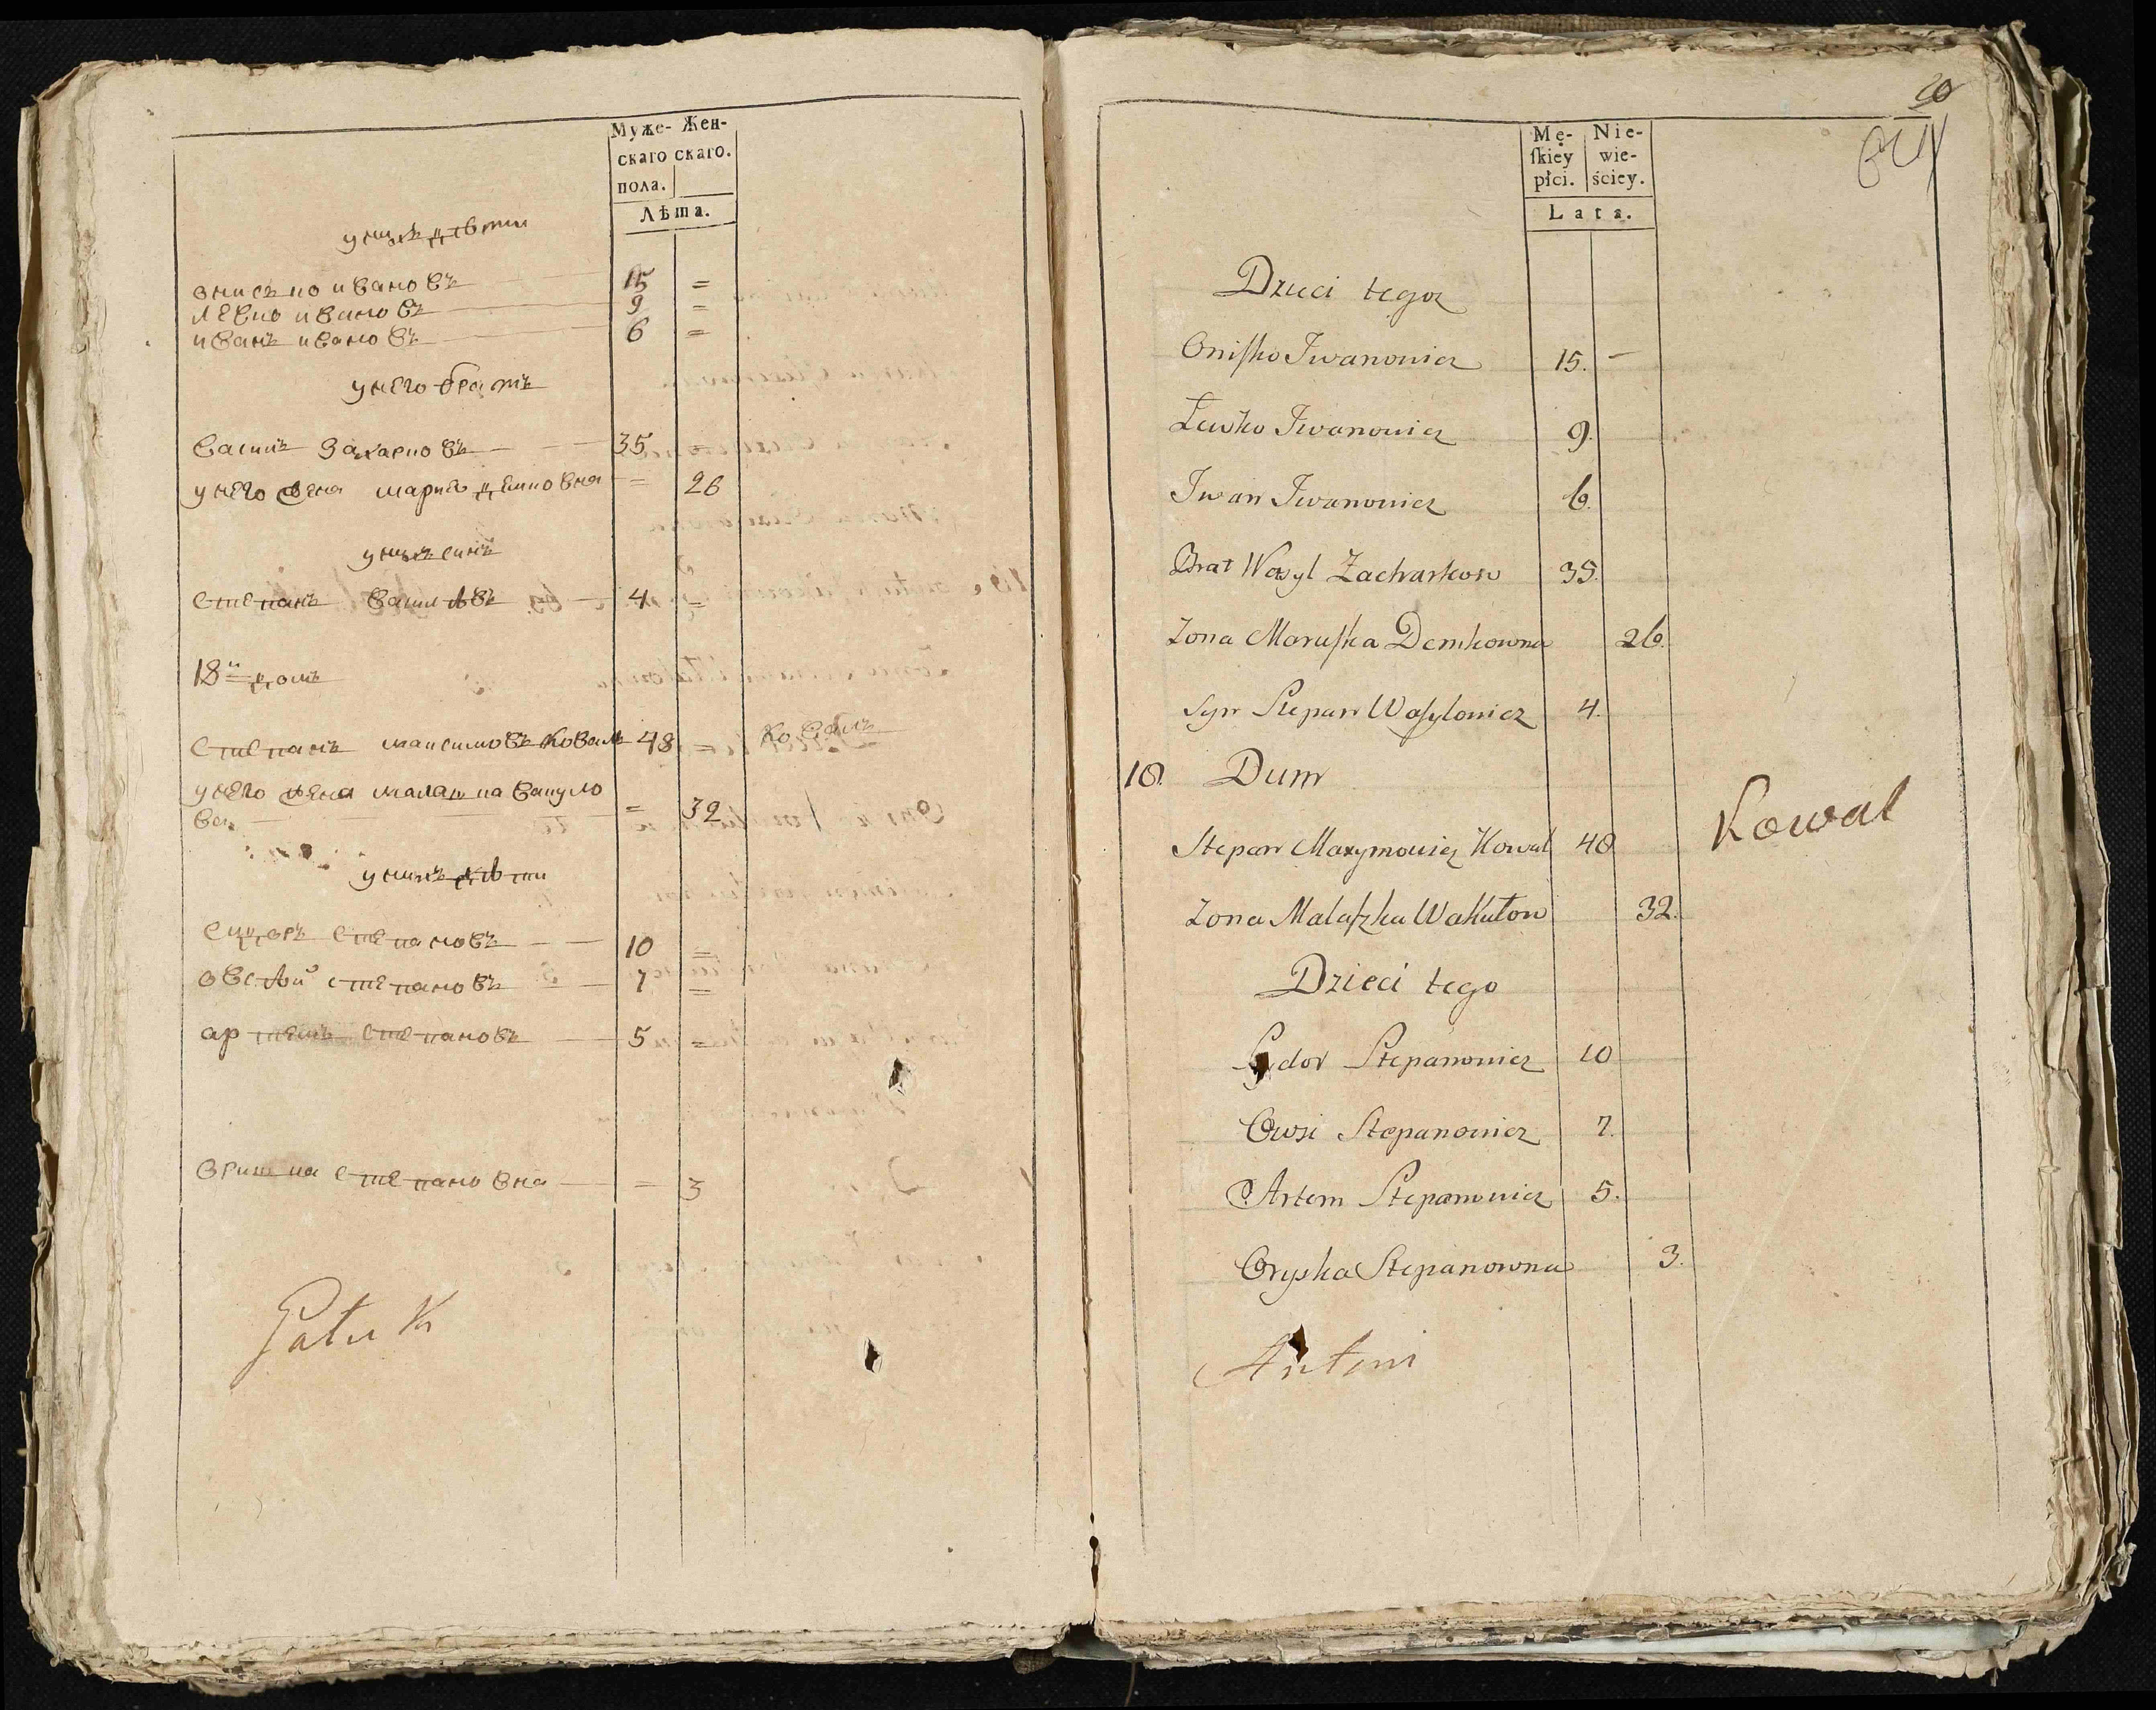 Муже- Жен-
скаго скаго.
пола.
Лѣта.
у нихъ дѣти
Онисько Ивановъ 15 =
Левко Ивановъ 9 =
Иванъ Ивановъ 6 =
у него братъ
Василь Захарковъ 35 =
у него жена Марися Демковна = 26
у нихъ синъ
Степанъ Васильвъ 4 =
18й домъ
Степанъ Максимовъ Коваль 48 = Коваль
у него жена Малашка Вакуло
ва = 32
у нихъ дѣти
Сидоръ Степановъ 10 =
Овсѣй Степановъ 7 =
Артемъ Степановъ 5 =
Оришка Степановна = 3
20
Mę- Nie-
skiey wie-
płci. ściey.
Lata.
Dzieci tegoz
Onisko Iwanowicz 15. —
Lewko Iwanowicz 9.
Iwan Iwanowicz 6.
Brat Wasyl Zacharkow 35.
Zona Maruska Demkowna 26.
Syn Stepan Wasylowicz 4.
18. Dum
Stepan Maxymowicz Kowal 48 Kowal
Zona Malaszka Wakułow 32.
Dzieci tego
Sydor Stepanowicz 10
Owsi Stepanowicz 7.
Artem Stepanowicz 5.
Oryska Stepanowna 3.
Antoni